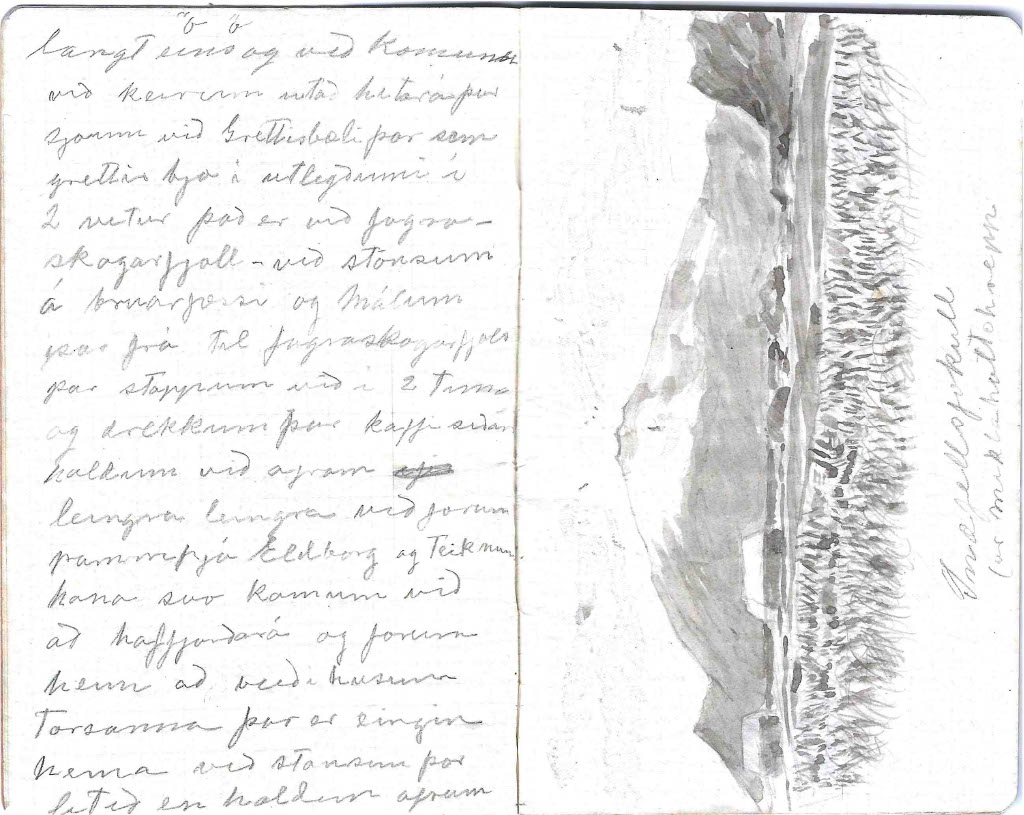 langt eins og við komunst
við keirum utað hitará þar
sjáum við Grettisbæli þar sem
grettir bjo i utlegdinni i
2 vetur það er við fagra-
skogarfjall - við stonsum
á bruarfossi og Málum
þar frá til fagraskogarfjall
þar stoppum við i 2 tima
og drekkum þar kaffi siðan
holdum við ofram
leingra leingra við forum
framm hjá Eldborg og Teiknum
hana svo komum við
að haffjarðará og forum
heim að veidi husinu
Torsanna þar er eingin
heima við stonsum þar
litið en holdum ofram
Snæfellsjökull
(we miklaholtshrepp